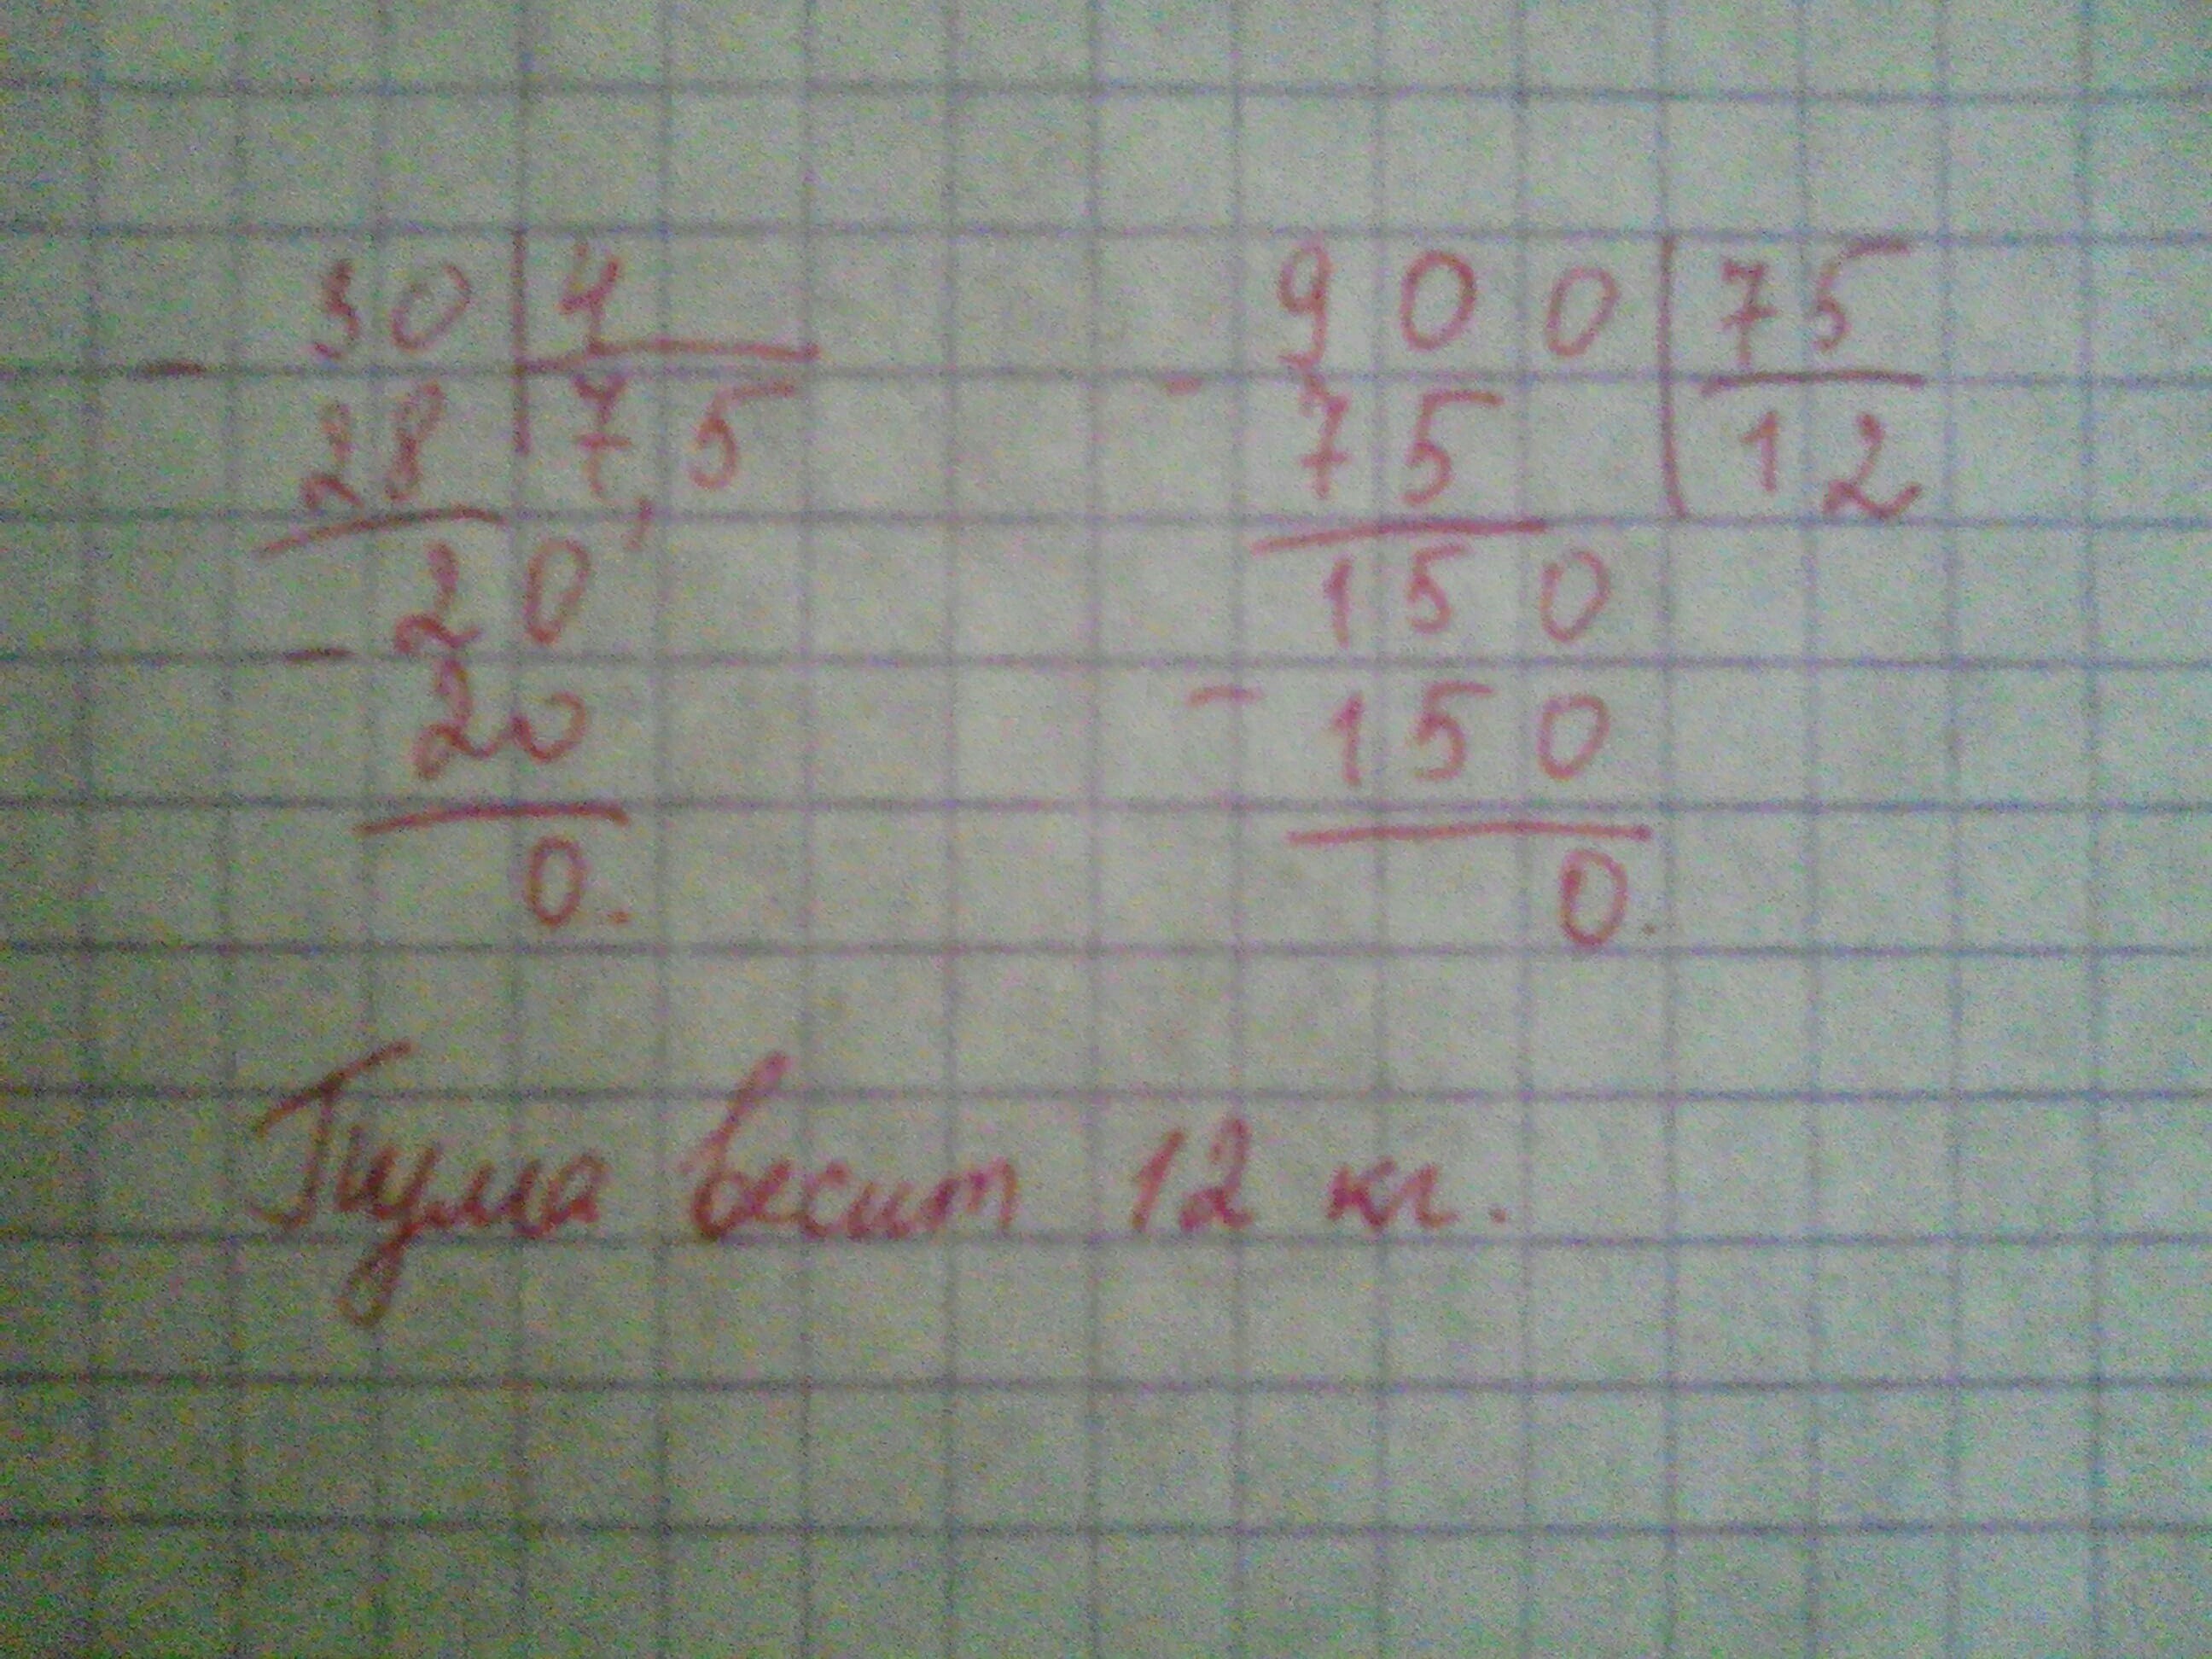 30 | 4 900 | 75
- 28 | 7,5 - 75 | 12
20 150
- 20 - 150
0. 0.
Пума весит 12 кг.